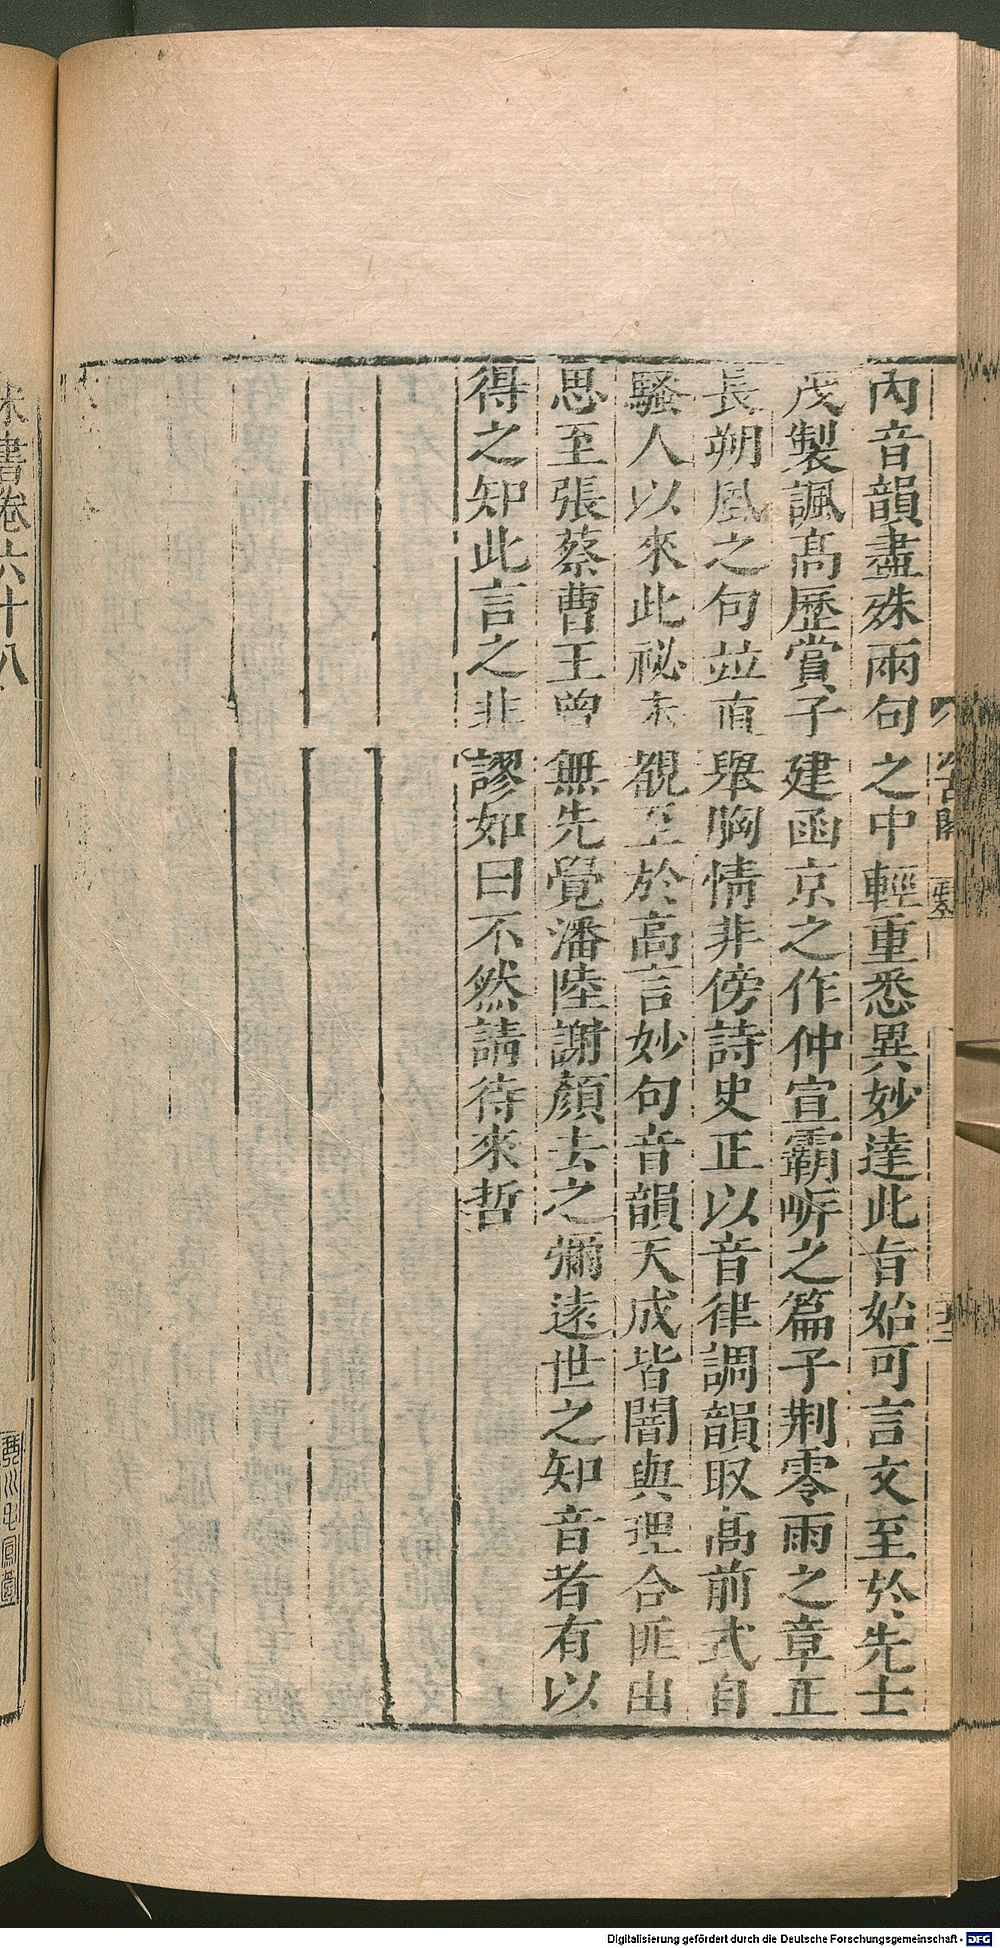 內音韻盡殊兩句之中輕重悉異妙達此旨始可言文至於先士
茂製諷高歷賞子建函京之作仲宣霸岸之篇子荆零雨之章正
長朔風之句竝直舉胸情非傍詩史正以音律調韻取高前式自
騷人以來此祕未覩至於高言妙句音韻天成皆闇與理合匪由
思至張蔡曹王曾無先覺潘陸謝顏去之彌遠世之知音者有以
得之知此言之非謬如曰不然請待來哲
宋書卷六十八
Digitalisierung gefördert durch die Deutsche Forschungsgemeinschaft - DFG